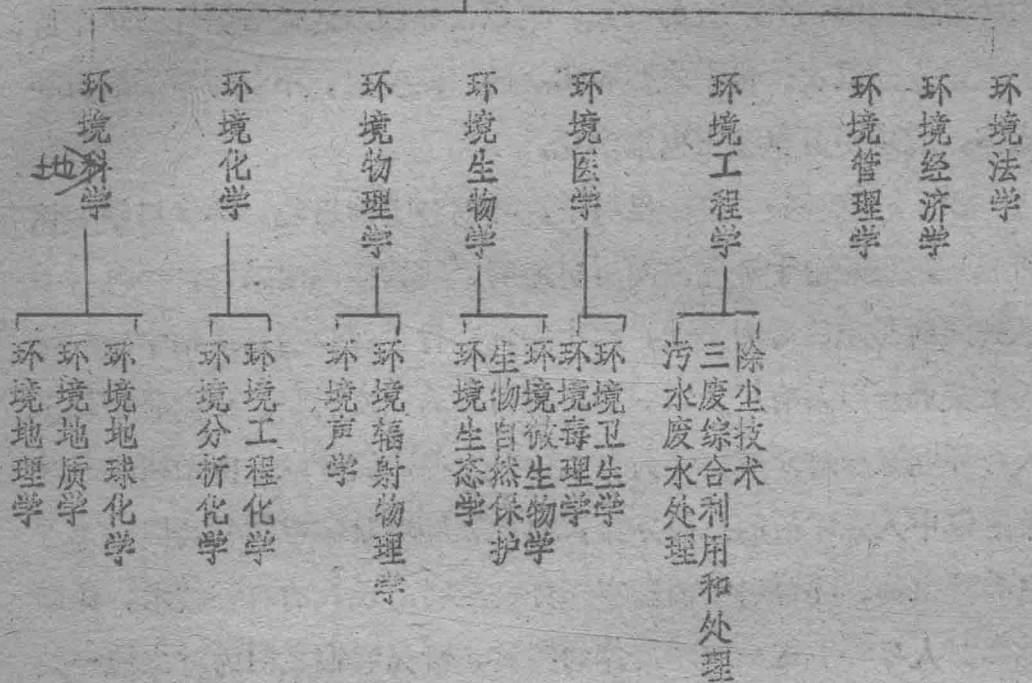 环境科学
地
环境化学
环境物理学
环境生物学
环境医学
环境工程学
环境管理学
环境经济学
环境法学
环境地理学
环境地质学
环境地球化学
环境分析化学
环境工程化学
环境声学
环境辐射物理学
环境生态学
生物自然保护
环境微生物学
环境毒理学
环境卫生学
污水废水处理
三废综合利用和处理
除尘技术